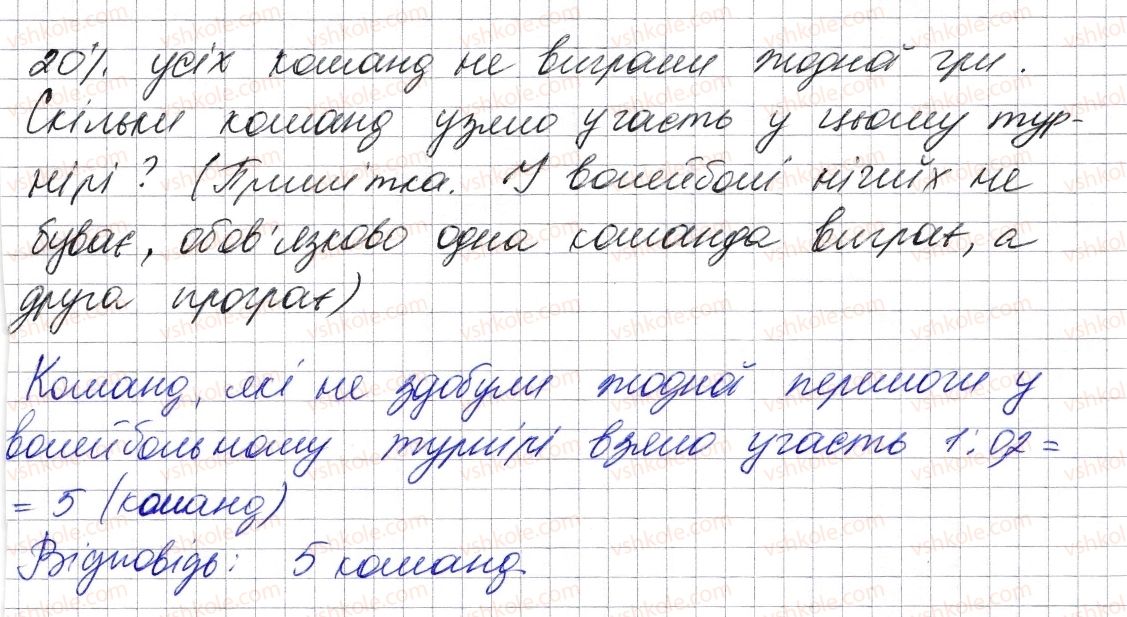 20% усіх команд не виграли жодної гри.
Скільки команд узяло участь у цьому тур-
нірі? (Примітка. У волейболі нічиїх не
буває, обов'язково одна команда виграє, а
друга програє)
Команд, які не здобули жодної перемоги у
волейбольному турнірі взяло участь 1:0,2=
= 5 (команд)
Відповідь: 5 команд